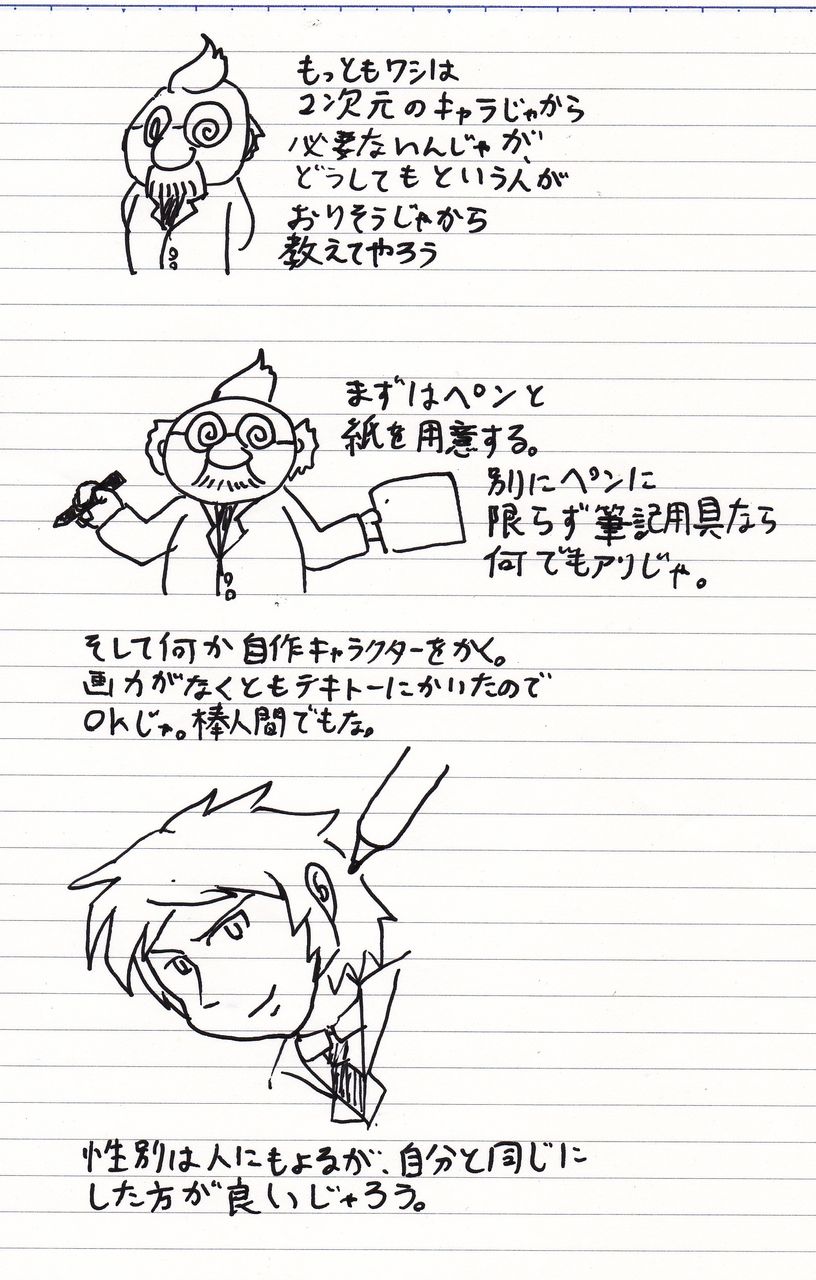 もっともワシは
2次元のキャラじゃから
必要ないんじゃが、
どうしてもという人が
おりそうじゃから
教えてやろう
まずはペンと
紙を用意する。
別にペンに
限らず筆記用具なら
何でもアリじゃ。
そして何か自作キャラクターをかく。
画力がなくともテキトーにかいたので
OKじゃ。棒人間でもな。
性別は人にもよるが、自分と同じに
した方が良いじゃろう。